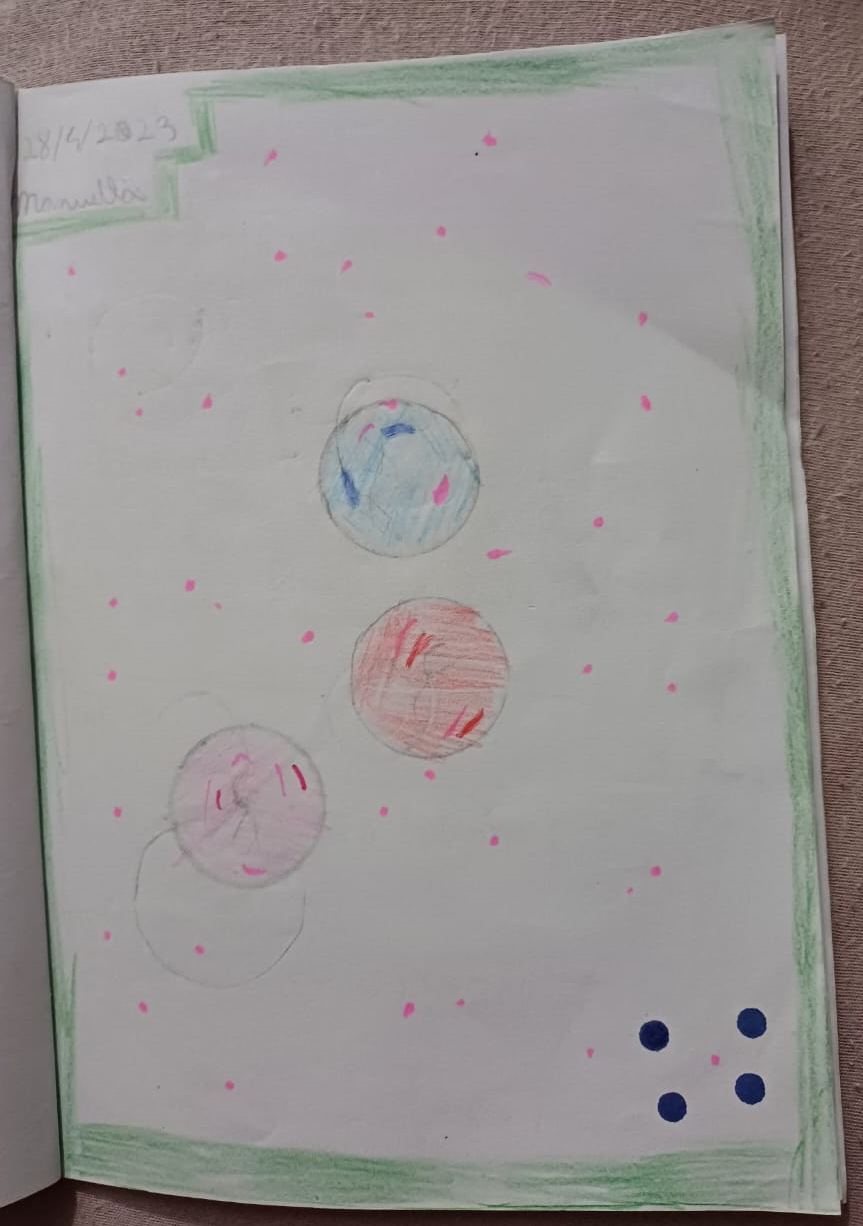 28/4/2023
Manuella